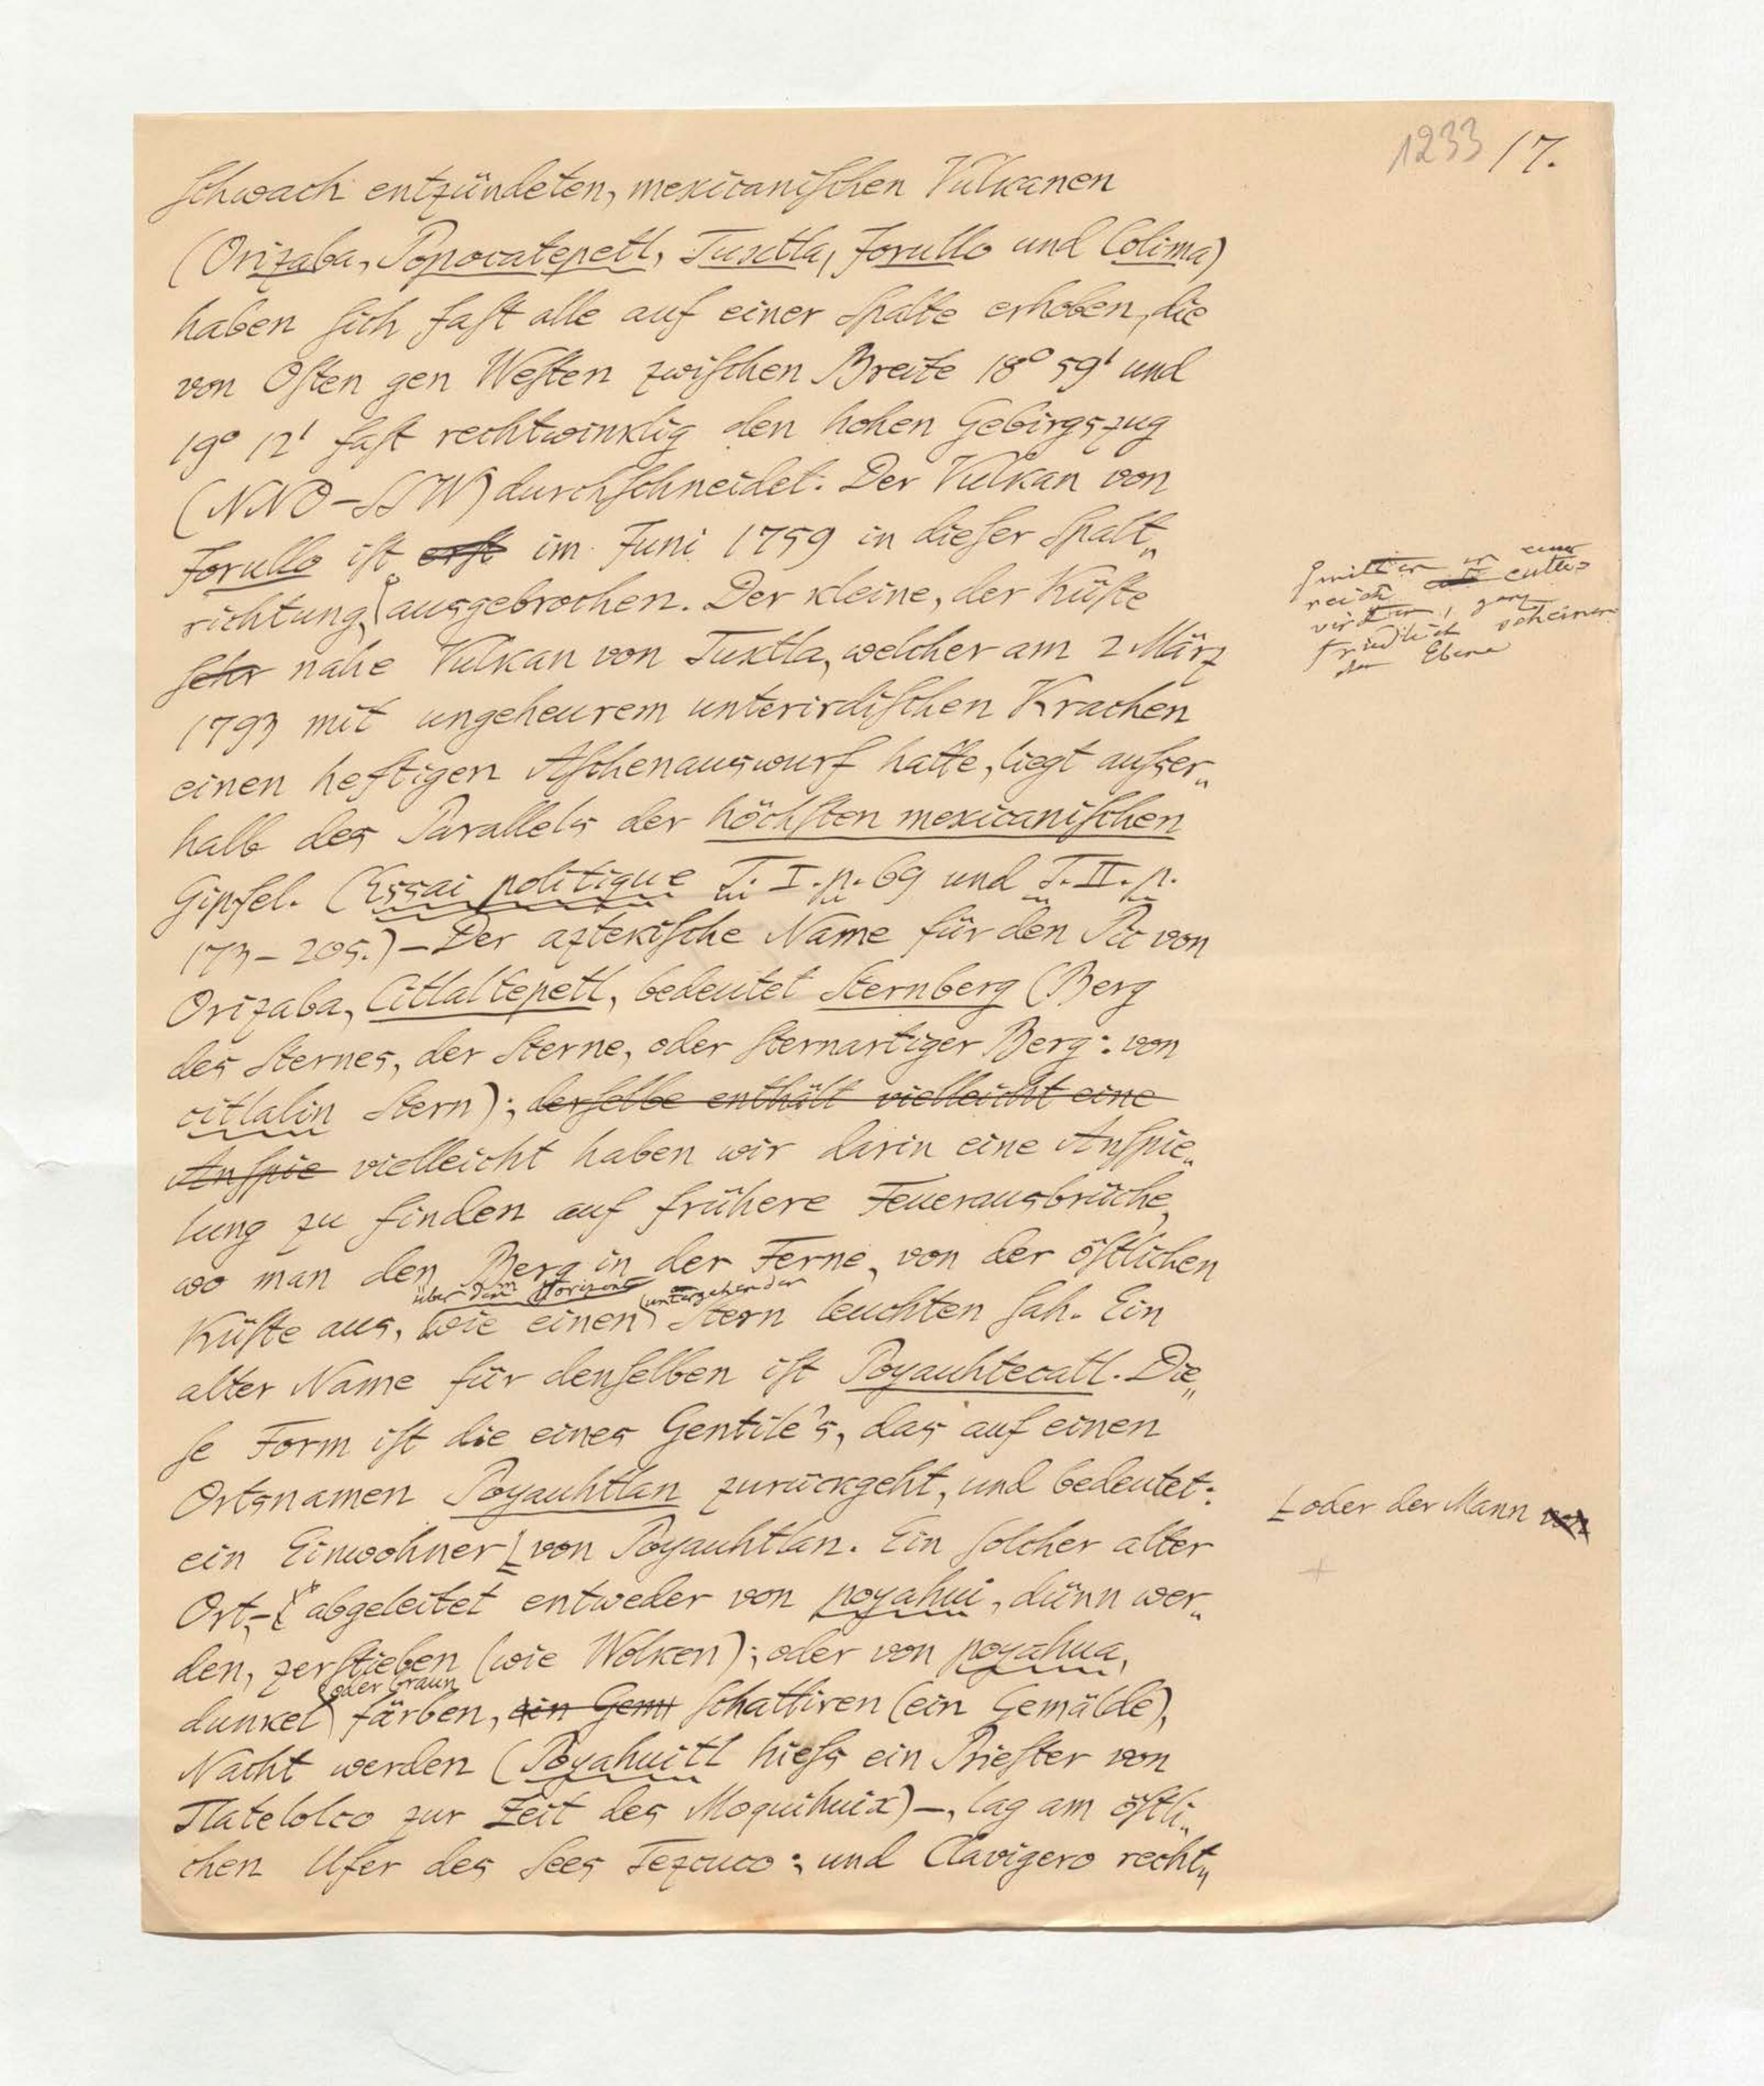 1233 17.
schwach entzündeten, mexicanischen Vulkanen
(Orizaba, Popocatepetl, Tuxtla, Jorullo und Colima)
haben sich fast alle auf einer Spalte erhoben, die
von Osten gen Westen zwischen Breite 18° 59' und
19° 12' fast rechtwinklig den hohen Gebirgszug
(NNO-SSW) durchschneidet. Der Vulkan von
Jorullo ist erst im Juni 1759 in dieser Spalt„
richtung, ausgebrochen. Der kleine, der Küste
sehr nahe Vulkan von Tuxtla, welcher am 2 März
1793 mit ungeheurem unterirdischen Krachen
einen heftigen Aschenauswurf hatte, liegt ausser„
halb des Parallels der höchsten mexicanischen
Gipfel. (Essai politique T. I. p. 69 und T. II. p.
173-205.) — Der aztekische Name für den Pic von
Orizaba, Citlaltepetl, bedeutet Sternberg (Berg
des Sternes, der Sterne, oder sternartiger Berg: von
citlalin Stern); derselbe enthält vielleicht eine
Anspie vielleicht haben wir darin eine Anspie„
lung zu finden auf frühere Feuerausbrüche,
wo man den Berg in der Ferne, von der östlichen
über dem Horizont untergehenden
Küste aus, wie einen Stern leuchten sah. Ein
alter Name für denselben ist Poyauhtecatl. Die„
se Form ist die eines Gentile's, das auf einen
Ortsnamen Poyauhtlan zurückgeht, und bedeutet:
ein Einwohner von Poyauhtlan. Ein solcher alter
Ort,- abgeleitet entweder von poyahui, dünn wer„
den, zerstieben (wie Wolken); oder von poyahua,
oder braun
dunkel färben, ein Gem schattiren (ein Gemälde),
Nacht werden (Poyahuitl hiess ein Priester von
Tlatelolco zur Zeit des Moquihuix) —, lag am östli„
chen Ufer des Sees Tezcuco; und Clavigero recht„
mitten in einer
reich cultivirten, ganz
friedlich scheinenden Ebene
oder der Mann von